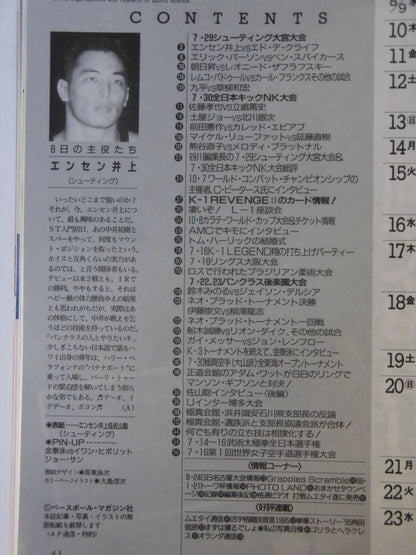 CONTENTS
8日の主役たち
エンセン井上
(シューティング)
いったいどこまで強いのか?
それが、今、エンセン井上につ
いて、最も興味のあることだ。
ST入門翌日、あの中井祐樹と
スパーをやって、何度もマウン
ト・ポジションを取ったという。
ホイスと互角くらいの実力があ
るのでは、と言う関係者もいる。
デビュー以来3戦とも、1Rで
の勝利。ややもすると、それは
ヘビー級の体力勝負ゆえの結果
とも思われがちだが、実際はあ
の体格にして、中井が教えをこ
うほどの技術を持っているのだ。
「パンクラスの人とやりたいネ」
少しぎこちない日本語で語るハ
ワイ出身の青年は、ハリー・ベ
ラフォンテの"バナナボート"に
乗って入場し、バーリ・トゥー
ドの緊迫感を解いてしまう朗ら
かな男でもある。♬デテ・イ、
デデテ・オ、ボヨン♬ (A)
◉表紙……エンセン井上&佐山聡
(シューティング)
◉PIN-UP……
金泰泳vsイワン・ヒポリット
ジョー・サン
表紙デザイン◉関東良次
カラーベースイラスト◉大島信次
©ベースボール・マガジン社
本誌記事・写真・イラストの無
断転載を厳禁します
(AP通信・特約)
7・29シューティング大宮大会
エンセン井上vsエド・デ・クライフ
エリック・パーソンvsベン・スパイカース
朝日昇vsレオニード・ザフラフスキー
レムコ・パドゥールvsカール・フランクスその他の試合
九平vs草柳和宏
7・30全日本キックNK大会
佐藤孝也vs立嶋篤史
土屋ジョーvs北川銀次
前田憲作vsカレッド・エビアブ
マイケル・リューファットvs延藤直樹
熊谷直子vsメロディ・プラットナル
谷川編集長の7・29シューティング大宮大会&
7・30全日本キックNK総評
10・7ワールド・コンバット・チャンピオンシップの
主催者、C・ピータース氏にインタビュー
K-1 REVENGEⅡのカード情報!
凄いぞ! L-1座談会
10・8カラテ・ワールド・カップ大会&チケット情報
AMCでキモにインタビュー
トム・ハーリックの結婚式
7・16K-1 LEGEND翔の打ち上げパーティー
7・18リングス大阪大会
ロスで行われたブラジリアン柔術大会
7・22、23パンクラス後楽園大会
鈴木みのるvsジェイソン・デルシア
ネオ・ブラッド・トーナメント決勝
伊藤崇文vs柳澤龍志
ネオ・ブラッド・トーナメント一回戦
船木誠勝vsリオン・ダイク、その他の試合
ガイ・メッサーvsジョン・レンフロー
K-3トーナメントを終えて、金泰泳にインタビュー
7・30極真空手(大山派)全東海オープントーナメント
正道会館のアダム・ワットが8日のリングで
マンソン・ギブソンと対決!
佐山聡インタビュー(後編)
Uインター博多大会
極真会館・浜井識安石川県支部長の反論
極真会館・遺族派と支部長協議会派が合体!
何でも有りの立ち技は相撲化する!
7・14~16武術太極拳全日本選手権
7・16第1回世界女子空手道選手権大会
〈情報コーナー〉
8・24SB名古屋大会情報 Grapples Scramble
1・21トーワ杯情報 PHOTO LAND おまかせタウンペ
〈好評連載〉
8/9
水
10木
11金
12土
13日
14月
15火
16水
17木
18金
19土
20日
21月
22火
23水